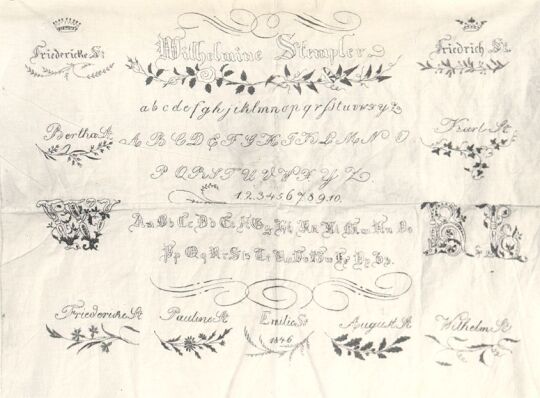 Friedericke St.
Wilhelmine Stempler
Friedrich St.
a b c d e f g h j i k l m n o p q r ſ s t u v w x y z
Bertha St.
A B C D E F G H I K L M N O
Karl St.
P Q R S T U V W X Y Z
1.2.3.4.5.6.7.8.9.10.
W
St
Aa Bb Cc Dd Ee Ff Gg Hh Ii Kk Ll Mm Nn Oo
Pp Qq Rr Ss Tt Uu Vv Ww Xx Yy Zz.
Friedericke St
Pauline St
Emilie St
August St
Wilhelm St
1846